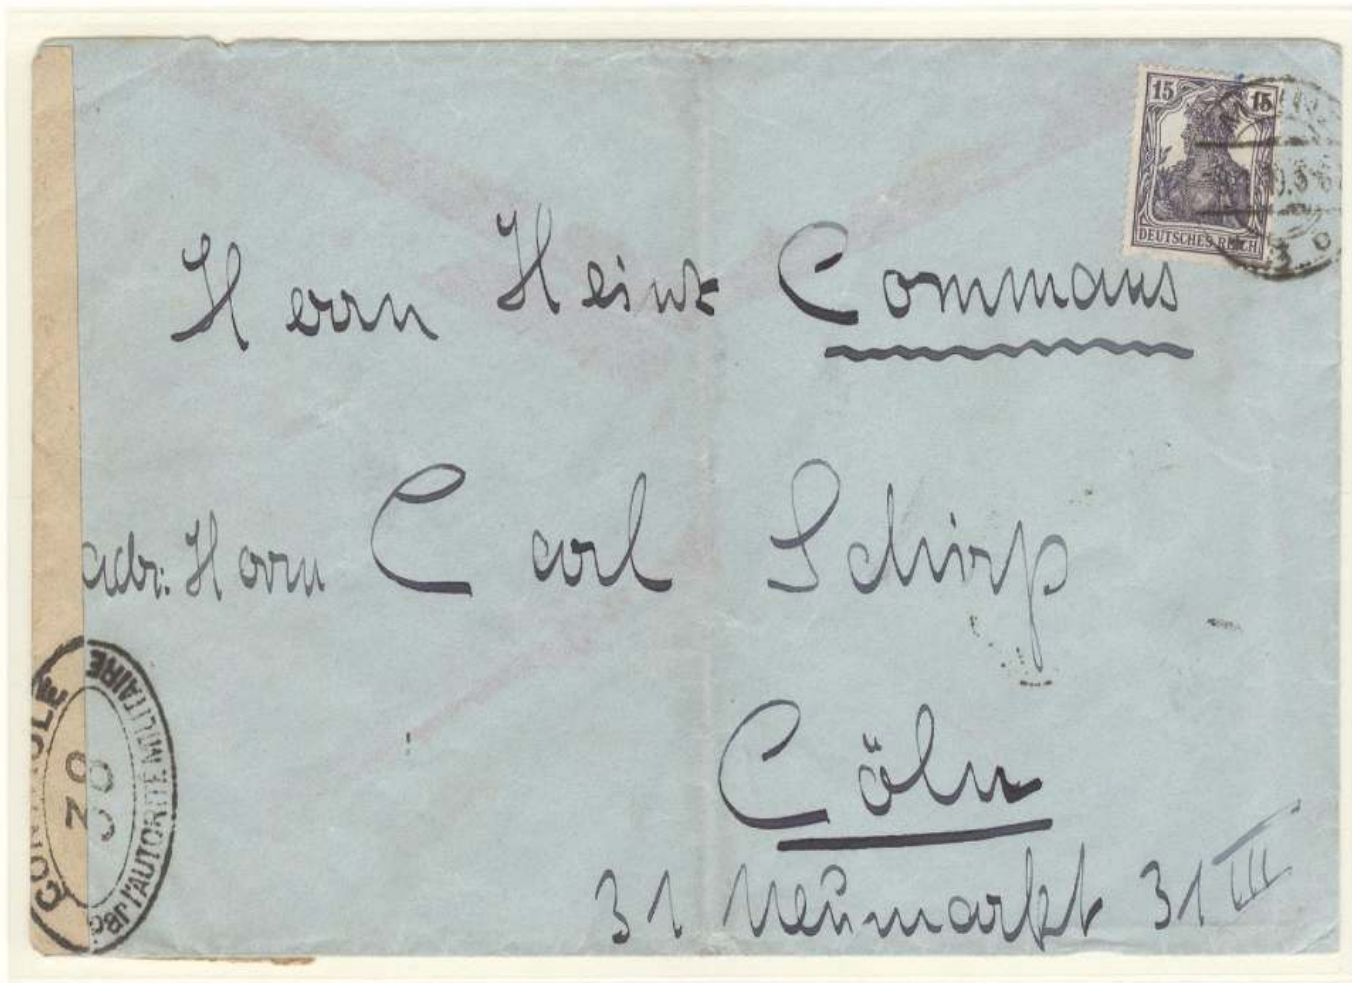 15 15
DEUTSCHES REICH
Herrn Heinr Commans
adr: Herrn Carl Schirp
Cöln
31 Neumarkt 31 III
CONTROLE
par l'AUTORITE MILITAIRE